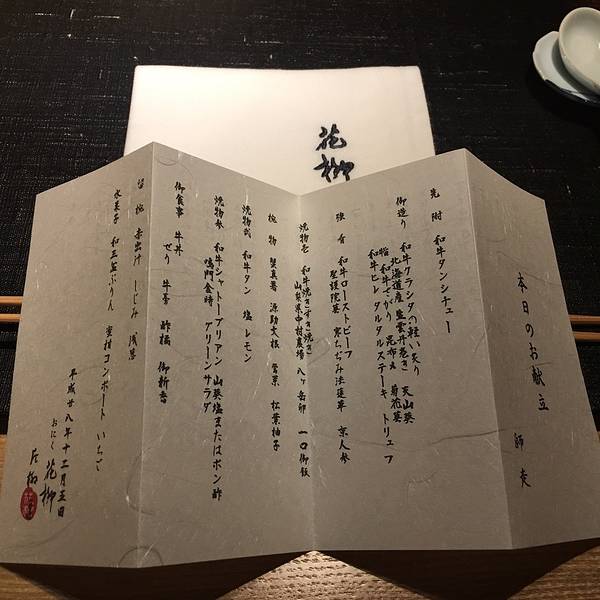 花柳
本日のお献立
師走
先附 和牛タンシチュー
御造り 和牛クラシタの軽い炙り 天山葵
北海道産 塩雲丹巻き 菊花葵
和牛さがり 昆布〆
和牛ヒレ タルタルステーキ トリュフ
強肴 和牛ローストビーフ
聖護院蕪 寒ちぢみ法蓮草 京人参
焼物壱 和牛焼きすき焼き
山梨県中村農場 八ヶ岳卵 一口御飯
椀物 蟹真薯 源助大根 鶯菜 松葉柚子
焼物弐 和牛タン 塩レモン
焼物参 和牛シャトーブリアン 山葵塩またはポン酢
鳴門金時 グリーンサラダ
御食事 牛丼
せり 牛蒡 酢橘 御新香
留椀 赤出汁 しじみ 浅葱
水菓子 和三盆ぷりん 蜜柑コンポート いちご
平成廿八年十二月五日
おにく 花柳